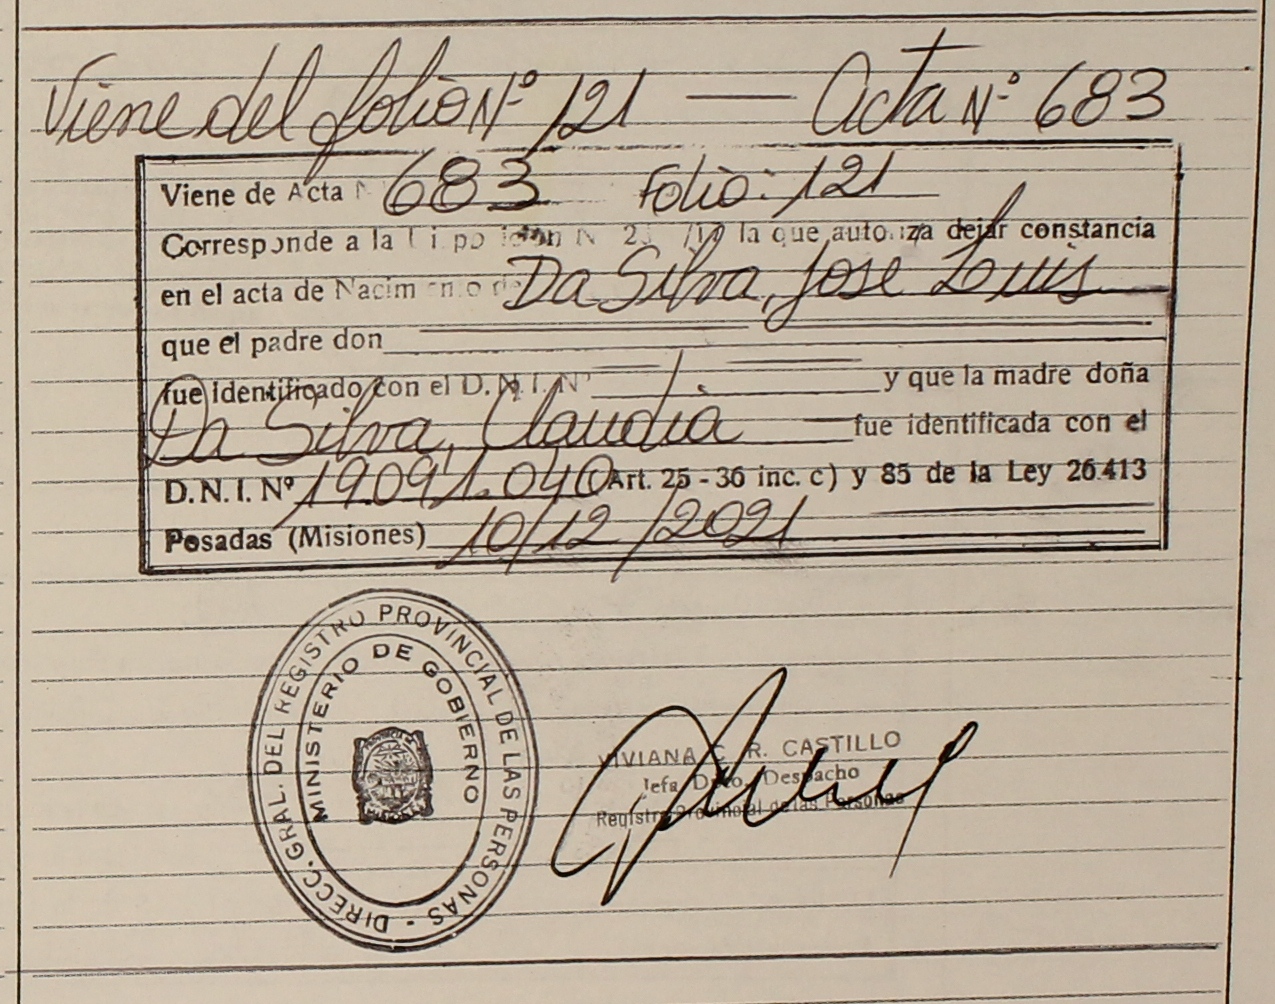 Viene del folio Nº 121 — Acta Nº 683
Viene de Acta N 683 Folio: 121
Corresponde a la la que autoriza dejar constancia
en el acta de Nacimiento de Da Silva, Jose Luis
que el padre don
fue identificado con el D.N.I. Nº y que la madre doña
Da Silva, Claudia fue identificada con el
D.N.I. Nº 19.091.040 Art. 25 - 36 inc. c) y 85 de la Ley 26.413
Posadas (Misiones) 10/12/2021
DIRECC. GRAL. DEL REGISTRO PROVINCIAL DE LAS PERSONAS -
MINISTERIO DE GOBIERNO
VIVIANA C. R. CASTILLO
Jefa Dpto. Despacho
Registro Provincial de las Personas